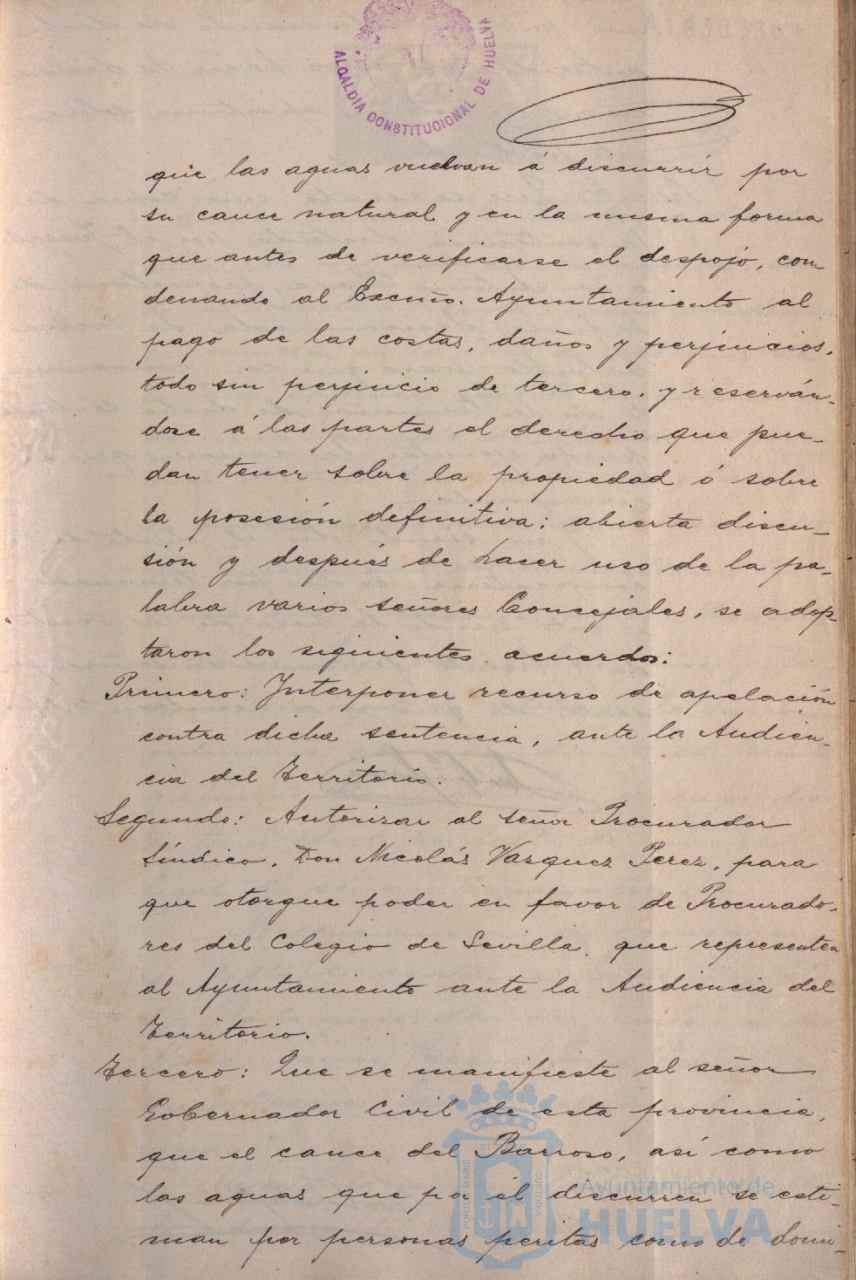 ALCALDIA CONSTITUCIONAL DE HUELVA
que las aguas vuelvan á discurrir por
su cauce natural y en la misma forma
que antes de verificarse el despojo, con
denando al Excmo. Ayuntamiento al
pago de las costas, daños y perjuicios,
todo sin perjuicio de tercero, y reserván-
dose á las partes el derecho que pue-
dan tener sobre la propiedad ó sobre
la posesión definitiva; abierta discu-
sión y después de hacer uso de la pa-
labra varios señores Concejales, se adop-
taron los siguientes acuerdos:
Primero: Interponer recurso de apelación
contra dicha sentencia, ante la Audien-
cia del Territorio.
Segundo: Autorizar al señor Procurador
Síndico, Don Nicolás Vazquez Perez, para
que otorgue poder en favor de Procurado-
res del Colegio de Sevilla, que representen
al Ayuntamiento ante la Audiencia del
Territorio.
Tercero: Que se manifieste al señor
Gobernador Civil de esta provincia,
que el cauce del Barroso, así como
las aguas que por él discurren se esti-
man por personas peritas como de domi-
PORTUS MARIS ET TERRAE CUSTODIA
Ayuntamiento de
HUELVA